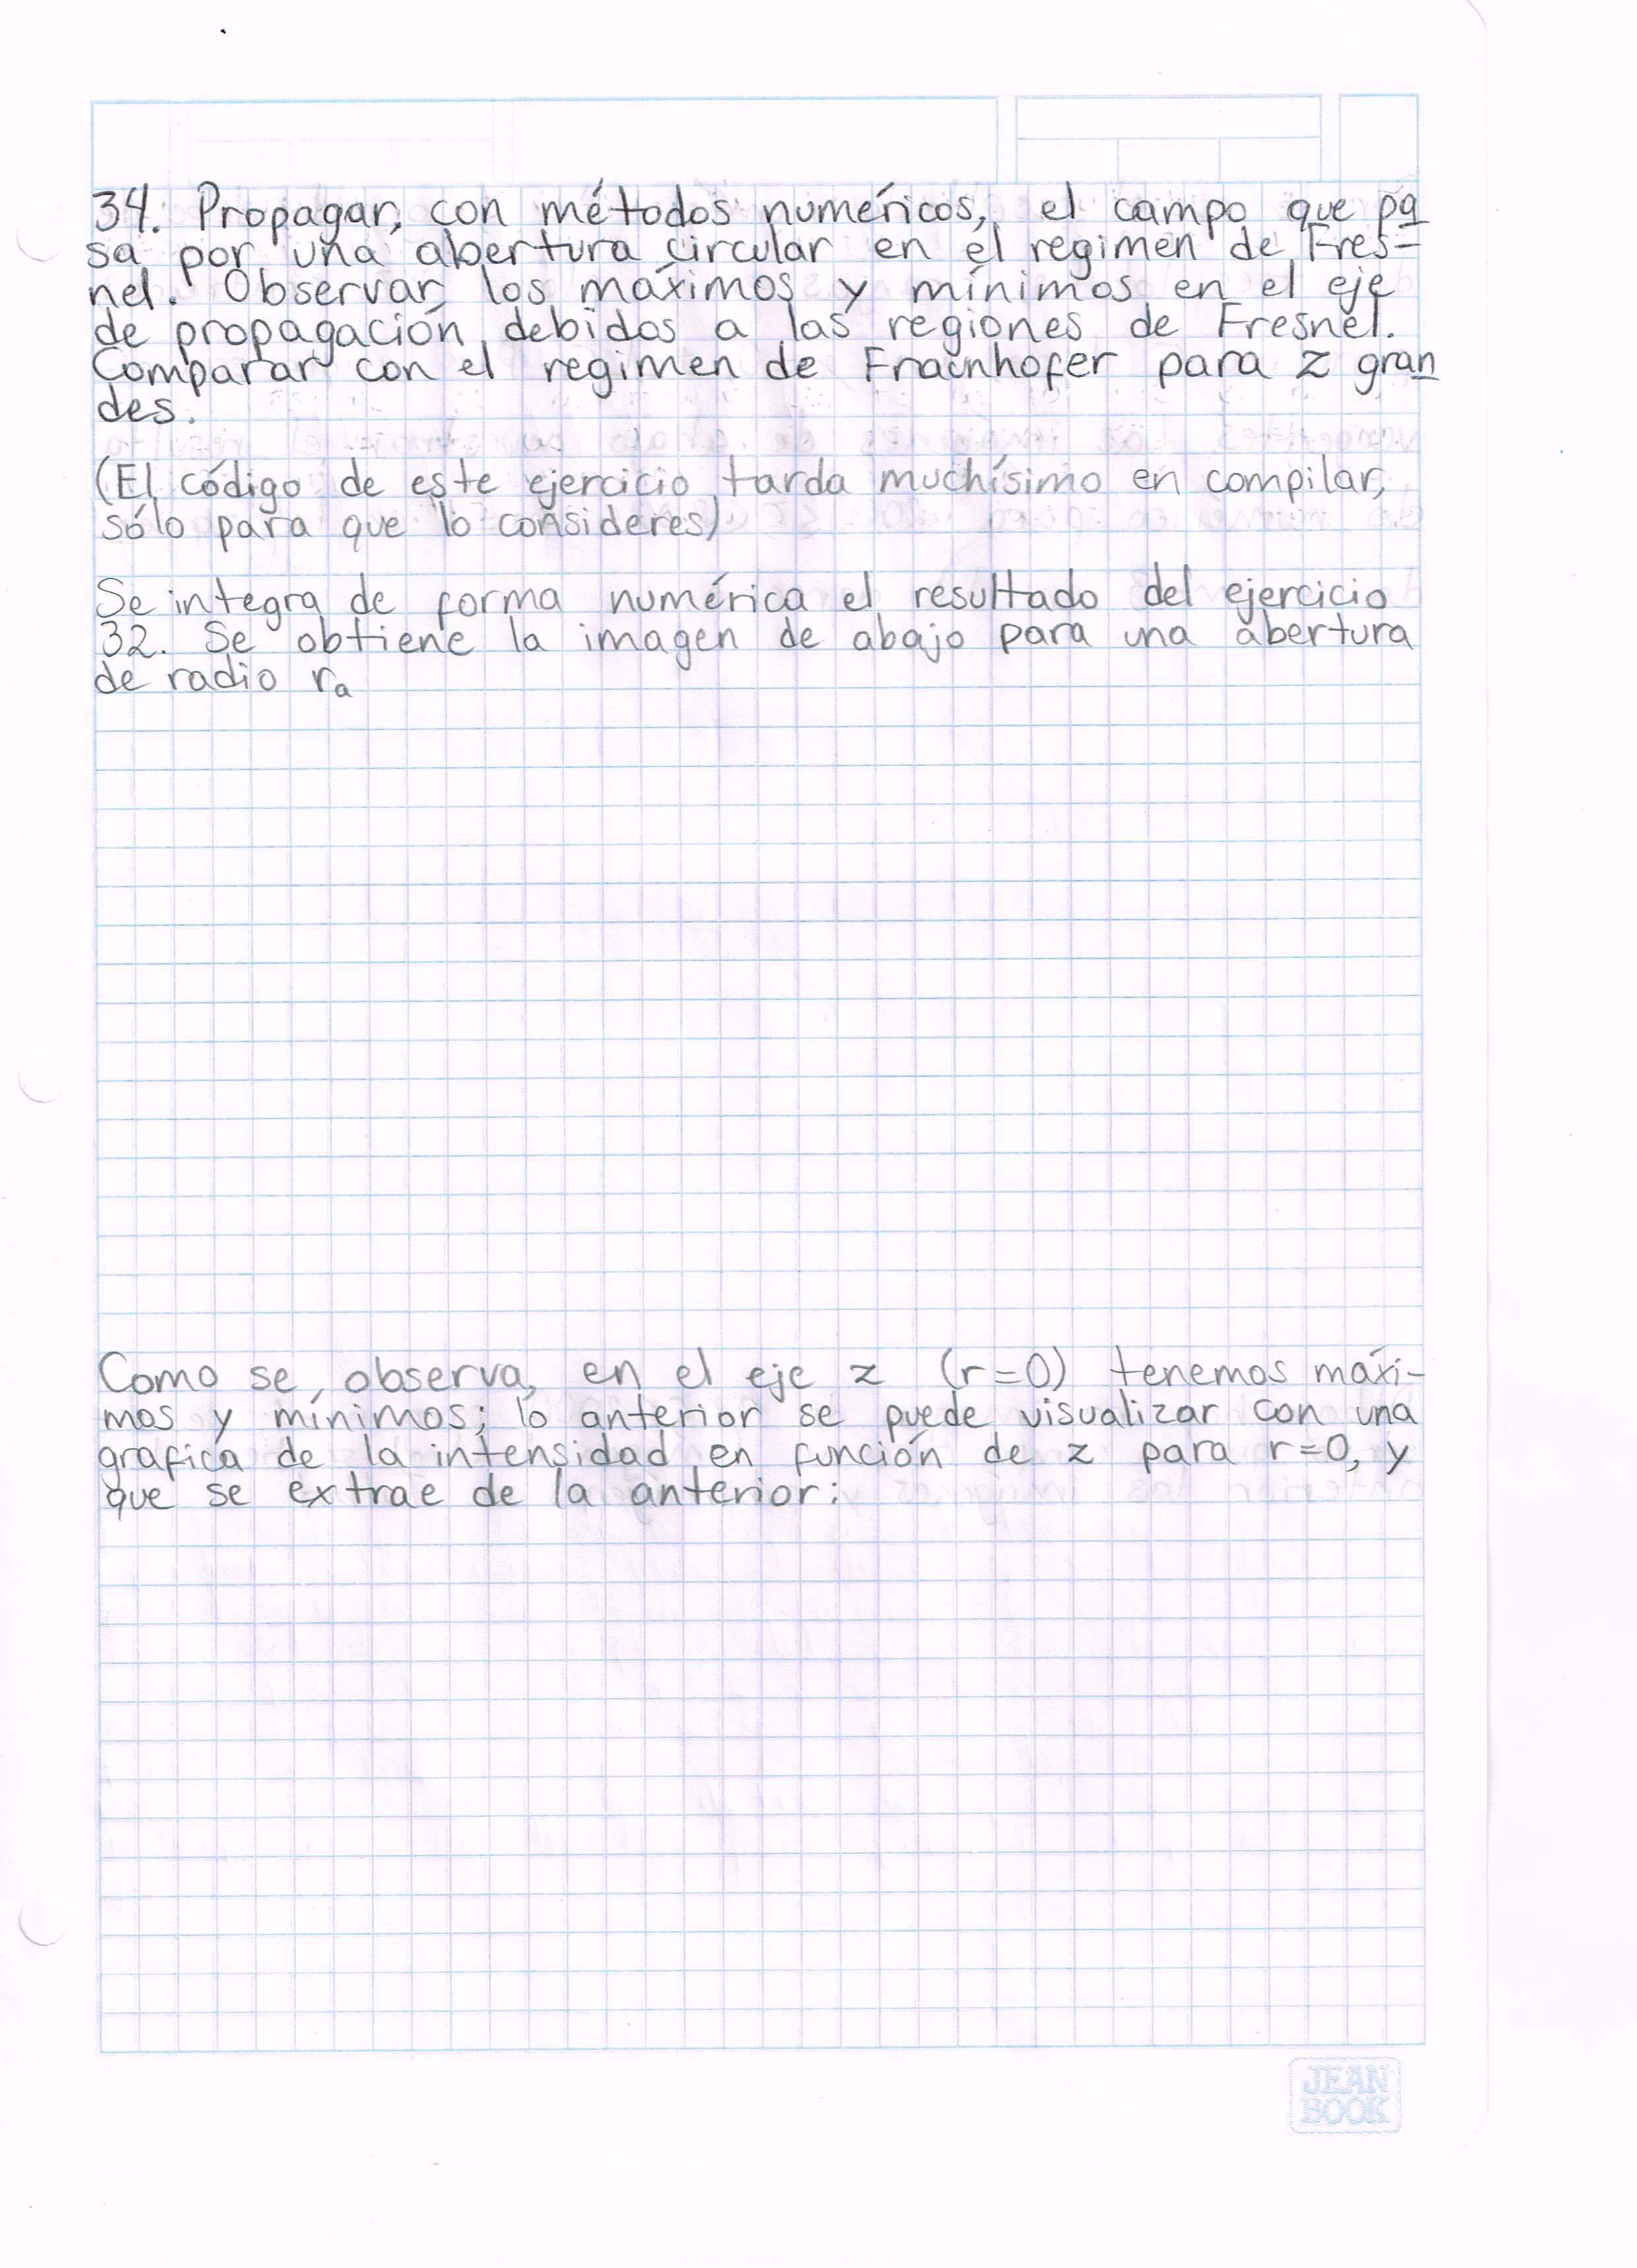 34. Propagar, con métodos numéricos, el campo que pa
sa por una abertura circular en el regimen de Fres-
nel. Observar los máximos y mínimos en el eje
de propagación debidos a las regiones de Fresnel.
Comparar con el regimen de Fraunhofer para z gran
des.
(El código de este ejercicio tarda muchísimo en compilar,
sólo para que lo consideres)
Se integra de forma numérica el resultado del ejercicio
32. Se obtiene la imagen de abajo para una abertura
de radio ra
Como se observa, en el eje z (r=0) tenemos máxi-
mos y mínimos; lo anterior se puede visualizar con una
gráfica de la intensidad en función de z para r=0, y
que se extrae de la anterior:
JEAN
BOOK